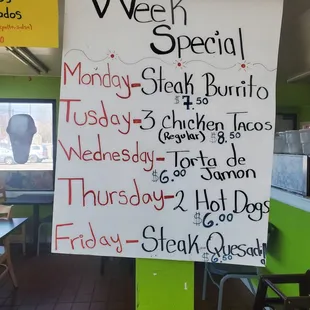 ados
Week
Special
Monday-Steak Burrito
$7.50
Tusday-3 chicken Tacos
(Regular) $8.50
Wednesday-Torta de
$6.00 Jamon
Thursday-2 Hot Dogs
$6.00
Friday-Steak Quesad
$6.50